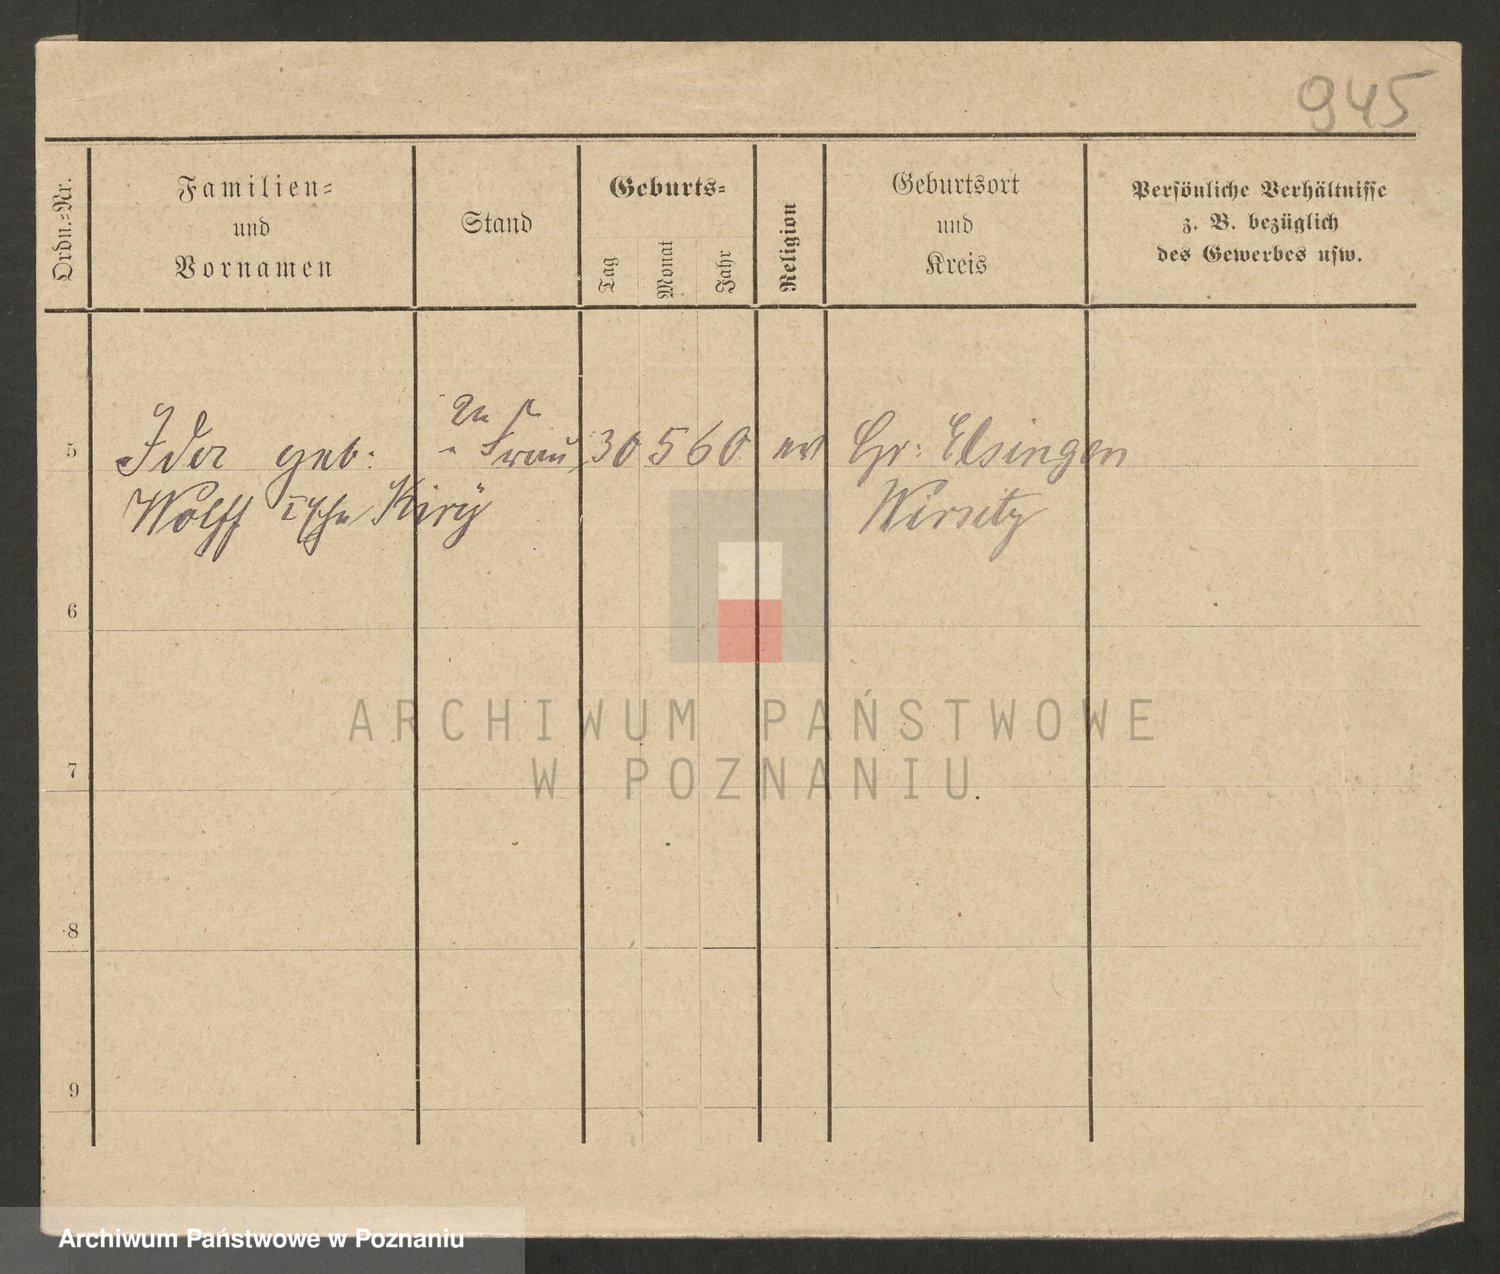 945
Ordn.-Nr.
Familien-
und
Vornamen
Stand
Geburts-
Tag
Monat
Jahr
Religion
Geburtsort
und
Kreis
Persönliche Verhältnisse
z. B. bezüglich
des Gewerbes usw.
5 Ida geb: Frau 30 5 60 ev Gr: Elsingen
Wolff Wirsitz
6
7
8
9
ARCHIWUM PAŃSTWOWE
W POZNANIU
Archiwum Państwowe w Poznaniu